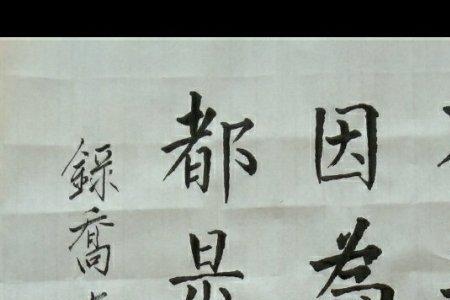 因為
都是
錄喬